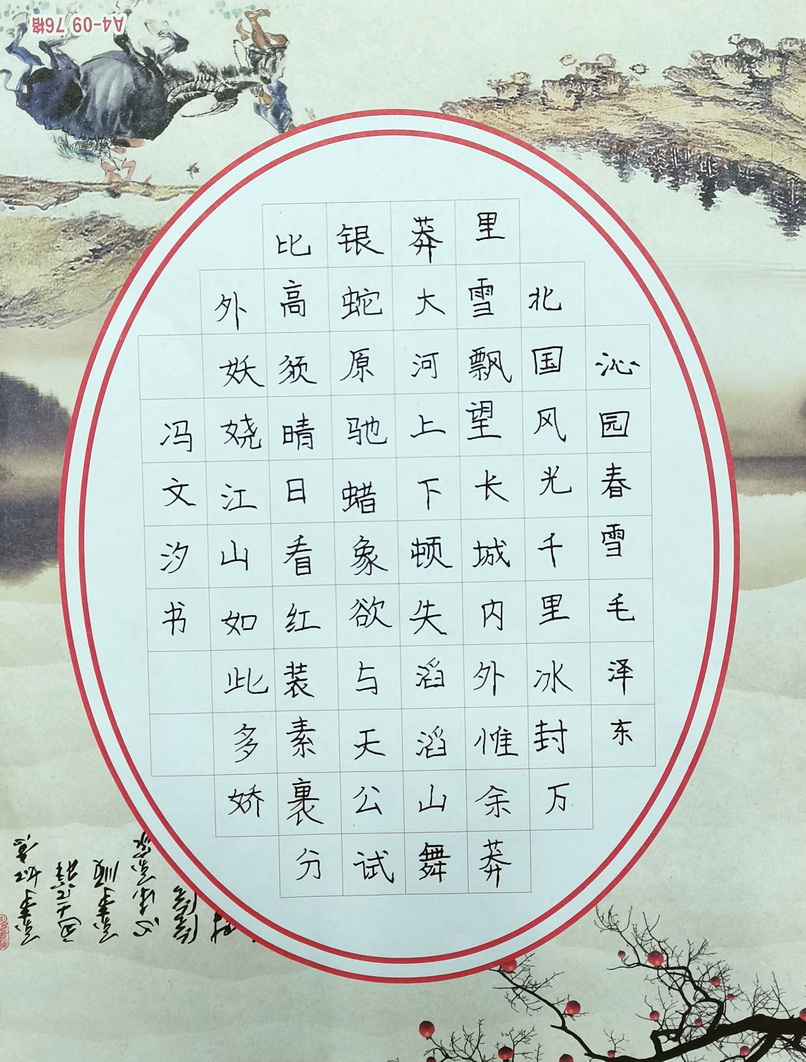 沁园春雪毛泽东
北国风光千里冰封万
里雪飘望长城内外惟余莽
莽大河上下顿失滔滔山舞
银蛇原驰蜡象欲与天公试
比高须晴日看红装素裹分
外妖娆江山如此多娇
冯文汐书
A4-09 76格